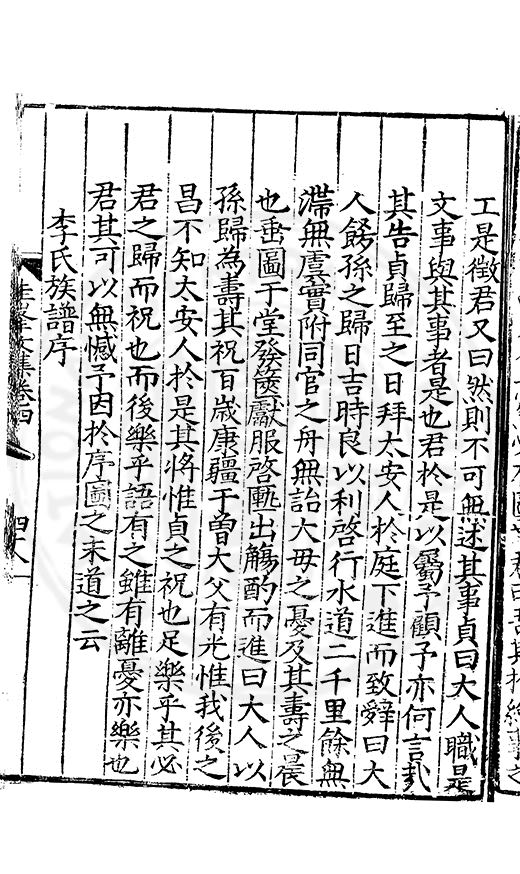 工是徵君又曰然則不可無述其事貞曰大人職是
文事與其事者是也君於是以屬予顧予亦何言哉
其告貞歸至之日拜太安人於庭下進而致辭曰大
人餞孫之歸日吉時良以利啓行水道二千里餘無
滯無虞實附同官之舟無詒大母之憂及其壽之晨
也垂圖于堂發篋獻服啓甒出觴酌而進曰大人以
孫歸為壽其祝百歲康彊于曾大父有光惟我後之
昌不知太安人於是其將惟貞之祝也足樂乎其必
君之歸而祝也而後樂乎語有之雖有離憂亦樂也
君其可以無憾予因於序圖之末道之云
李氏族譜序
文集卷四
四十八